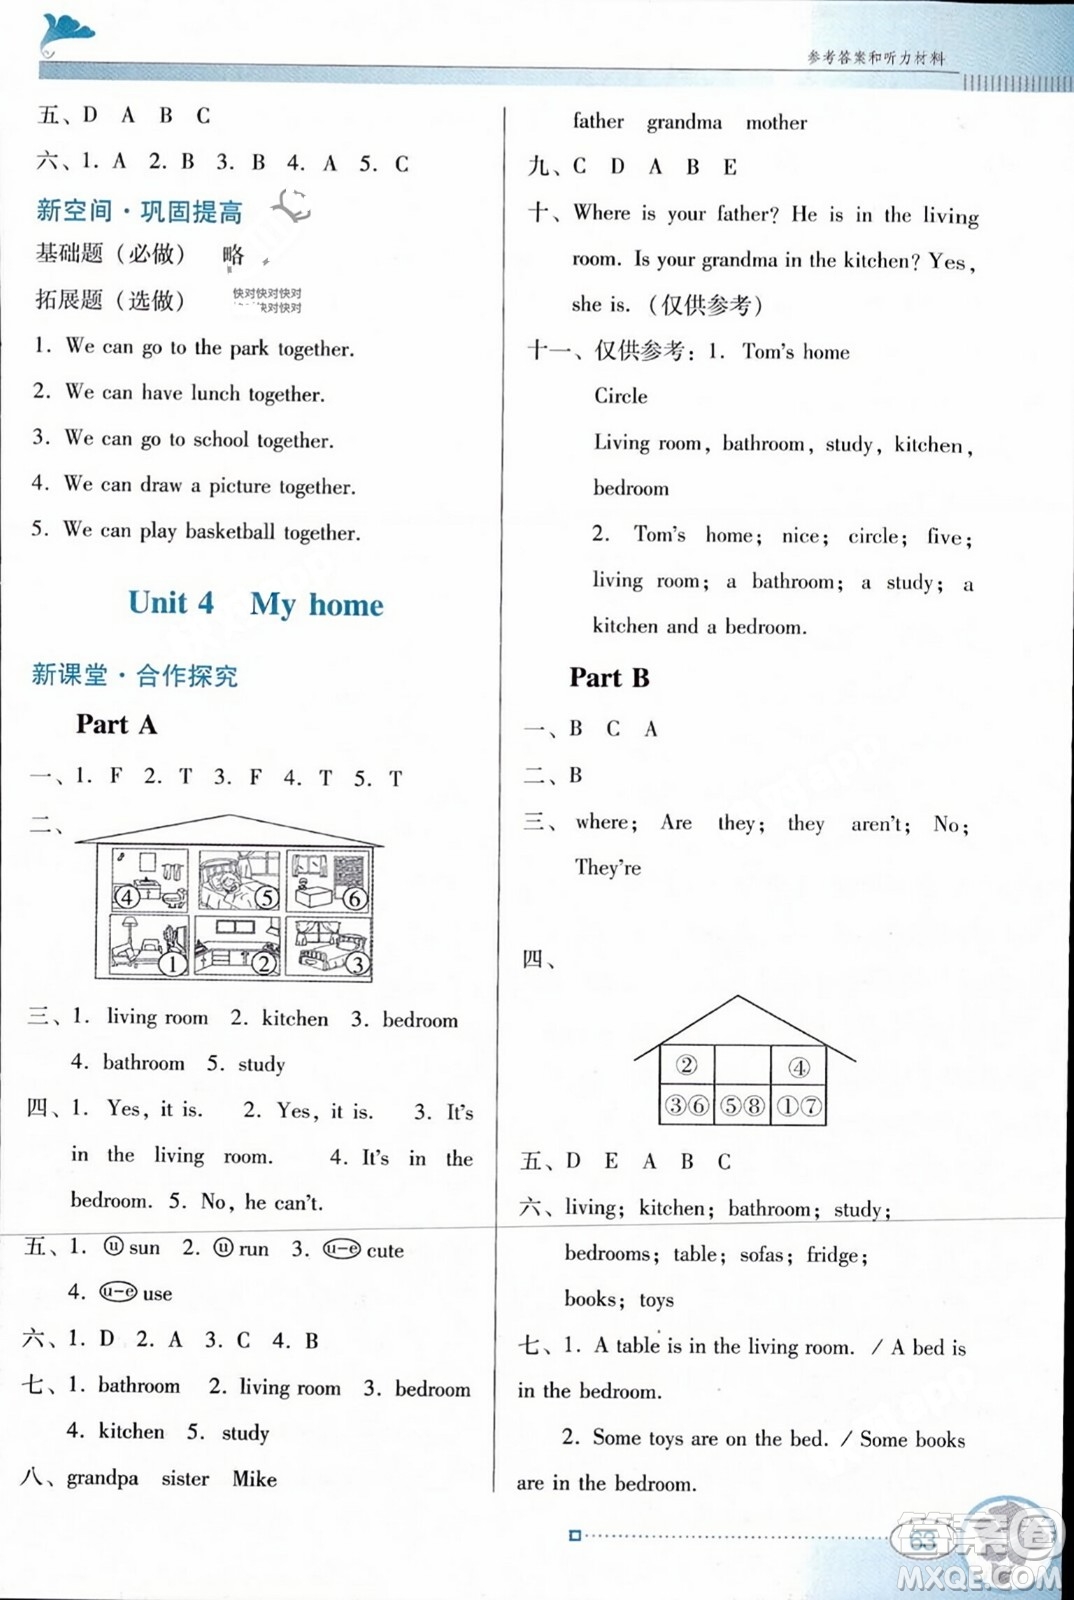 参考答案和听力材料
五、D A B C
六、1. A 2. B 3. B 4. A 5. C
新空间·巩固提高
基础题（必做） 略
拓展题（选做）
快对快对快对
1. We can go to the park together.
2. We can have lunch together.
3. We can go to school together.
4. We can draw a picture together.
5. We can play basketball together.
Unit 4 My home
新课堂·合作探究
Part A
一、1. F 2. T 3. F 4. T 5. T
二、
④ ⑤ ⑥
① ② ③
三、1. living room 2. kitchen 3. bedroom
4. bathroom 5. study
四、1. Yes, it is. 2. Yes, it is. 3. It's
in the living room. 4. It's in the
bedroom. 5. No, he can't.
五、1. u sun 2. u run 3. u-e cute
4. u-e use
六、1. D 2. A 3. C 4. B
七、1. bathroom 2. living room 3. bedroom
4. kitchen 5. study
八、grandpa sister Mike
father grandma mother
九、C D A B E
十、Where is your father? He is in the living
room. Is your grandma in the kitchen? Yes,
she is.（仅供参考）
十一、仅供参考：1. Tom's home
Circle
Living room, bathroom, study, kitchen,
bedroom
2. Tom's home; nice; circle; five;
living room; a bathroom; a study; a
kitchen and a bedroom.
Part B
一、B C A
二、B
三、where; Are they; they aren't; No;
They're
四、
② ④
③⑥ ⑤⑧ ①⑦
五、D E A B C
六、living; kitchen; bathroom; study;
bedrooms; table; sofas; fridge;
books; toys
七、1. A table is in the living room. / A bed is
in the bedroom.
2. Some toys are on the bed. / Some books
are in the bedroom.
63
答案圈
MXQE.COM